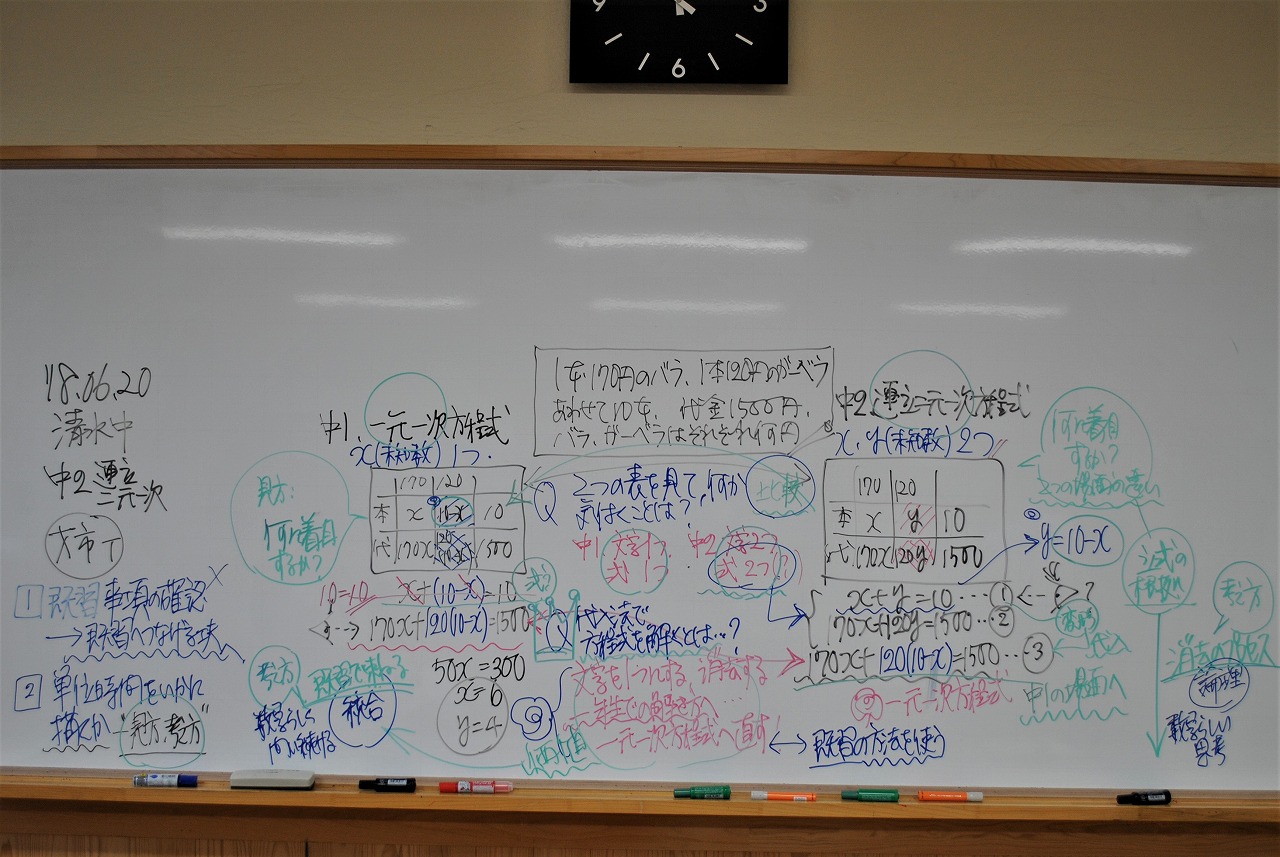 9
3
6
'18.06.20
清水中
中2 連立
二元一次
1 既習事項の確認
→既習へつなげる
2 単位時間をいかに
描くか "見方・考方"
見方:
何に着目
するか?
中1. 一元一次方程式
x(未知数)1つ.
170 120
本 x 10-x 10
代 170x 1500
10=10 x+(10-x)=10
170x+120(10-x)=1500
50x=300
x=6
y=4
考方
既習で
数学らしく
統合
1本170円のバラ、1本120円のガーベラ
あわせて10本、代金1500円.
バラ、ガーベラはそれぞれ何本
Q 2つの表を見て、何か
気付くことは?
比較
中1 文字1つ 中2 文字2つ
式1つ 式2つ?
式?
Q 代入法で
方程式を解くとは…?
文字を1つにする、消去する
一年生での解き方へ…
一元一次方程式へ直す
↔ 既習の方法を使う
中2 連立二元一次方程式
x, y(未知数)2つ
170 120
本 x y 10
代 170x 120y 1500
y=10-x
x+y=10…①
170x+120y=1500…②
170x+120(10-x)=1500…③
代入
一元一次方程式
中1の場面へ
何に着目
するか?
2つの場面の違い
立式の
根拠
考え方
消去のプロセス
論理
数学らしい
思考